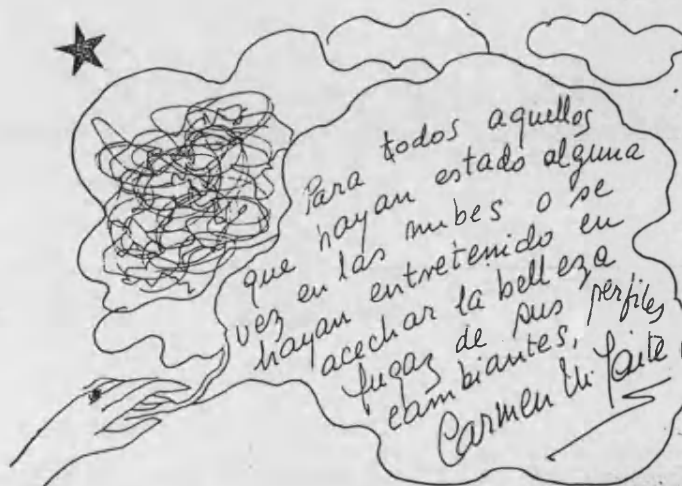 Para todos aquellos
que hayan estado alguna
vez en las nubes o se
hayan entretenido en
acechar la belleza
fugaz de sus perfiles
cambiantes,
Carmen M. Gaite